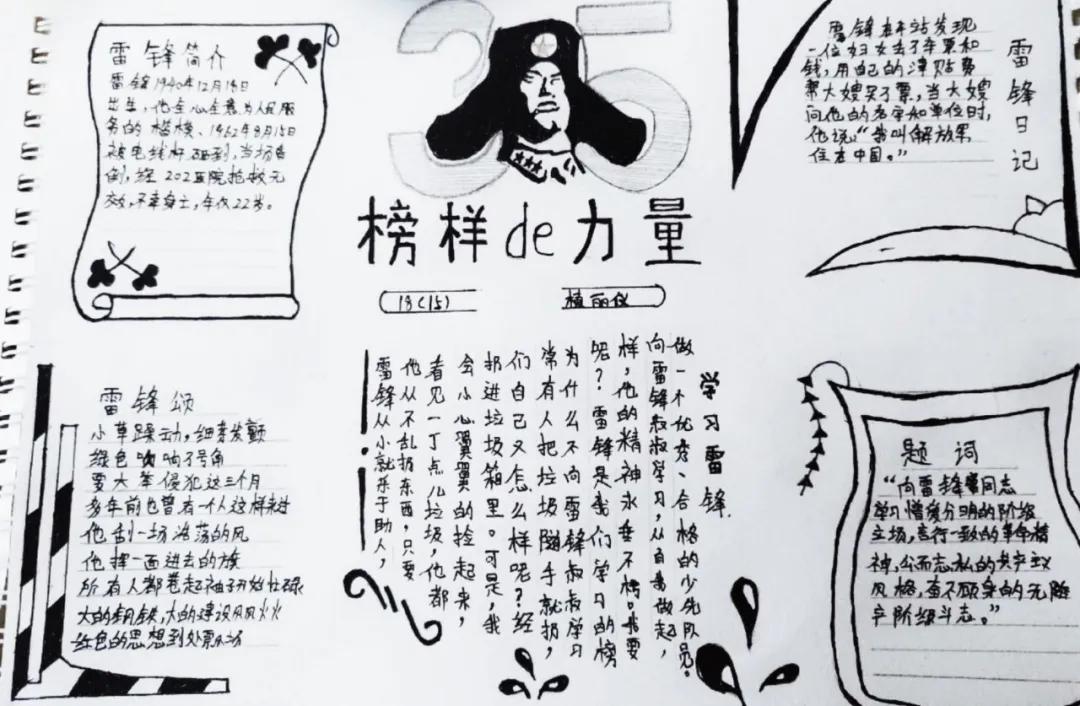 雷锋简介
雷锋1940年12月18日
出生,他全心全意为人民服
务的楷模、1962年8月15日
被电线杆砸到,当场昏
倒,经202医院抢救无
效,不幸身亡,年仅22岁。
35
榜样de力量
18(15)
植丽仪
雷锋日记
雷锋在车站发现
一位妇女丢了车票和
钱,用自己的津贴费
帮大嫂买了票,当大嫂
问他的名字和单位时,
他说:“我叫解放军
住在中国。”
雷锋颂
小草躁动,细芽发颤
绿色吹响了号角
要大举侵犯这三个月
多年前也曾有一个人这样来过
他刮一场浩荡的风
他挥一面进去的旗
所有人都卷起袖子开始忙碌
大的钢铁,大的建设风风火火
红色的思想到处
学习雷锋
做一个优秀、合格的少先队员。
向雷锋叔叔学习,从自身做起,
样,他的精神永垂不朽。我要
呢?雷锋是我们学习的榜
为什么不向雷锋叔叔学习
常有人把垃圾随手就扔,
们自己又怎么样呢?经
扔进垃圾箱里。可是,我
会小心翼翼的捡起来,
看见一丁点儿垃圾,他都
他从不乱扔东西,只要
雷锋从小就乐于助人,
题词
“向雷锋同志
学习憎爱分明的阶级
立场,言行一致的革命精
神,公而忘私的共产主义
风格,奋不顾身的无
产阶级斗志。”